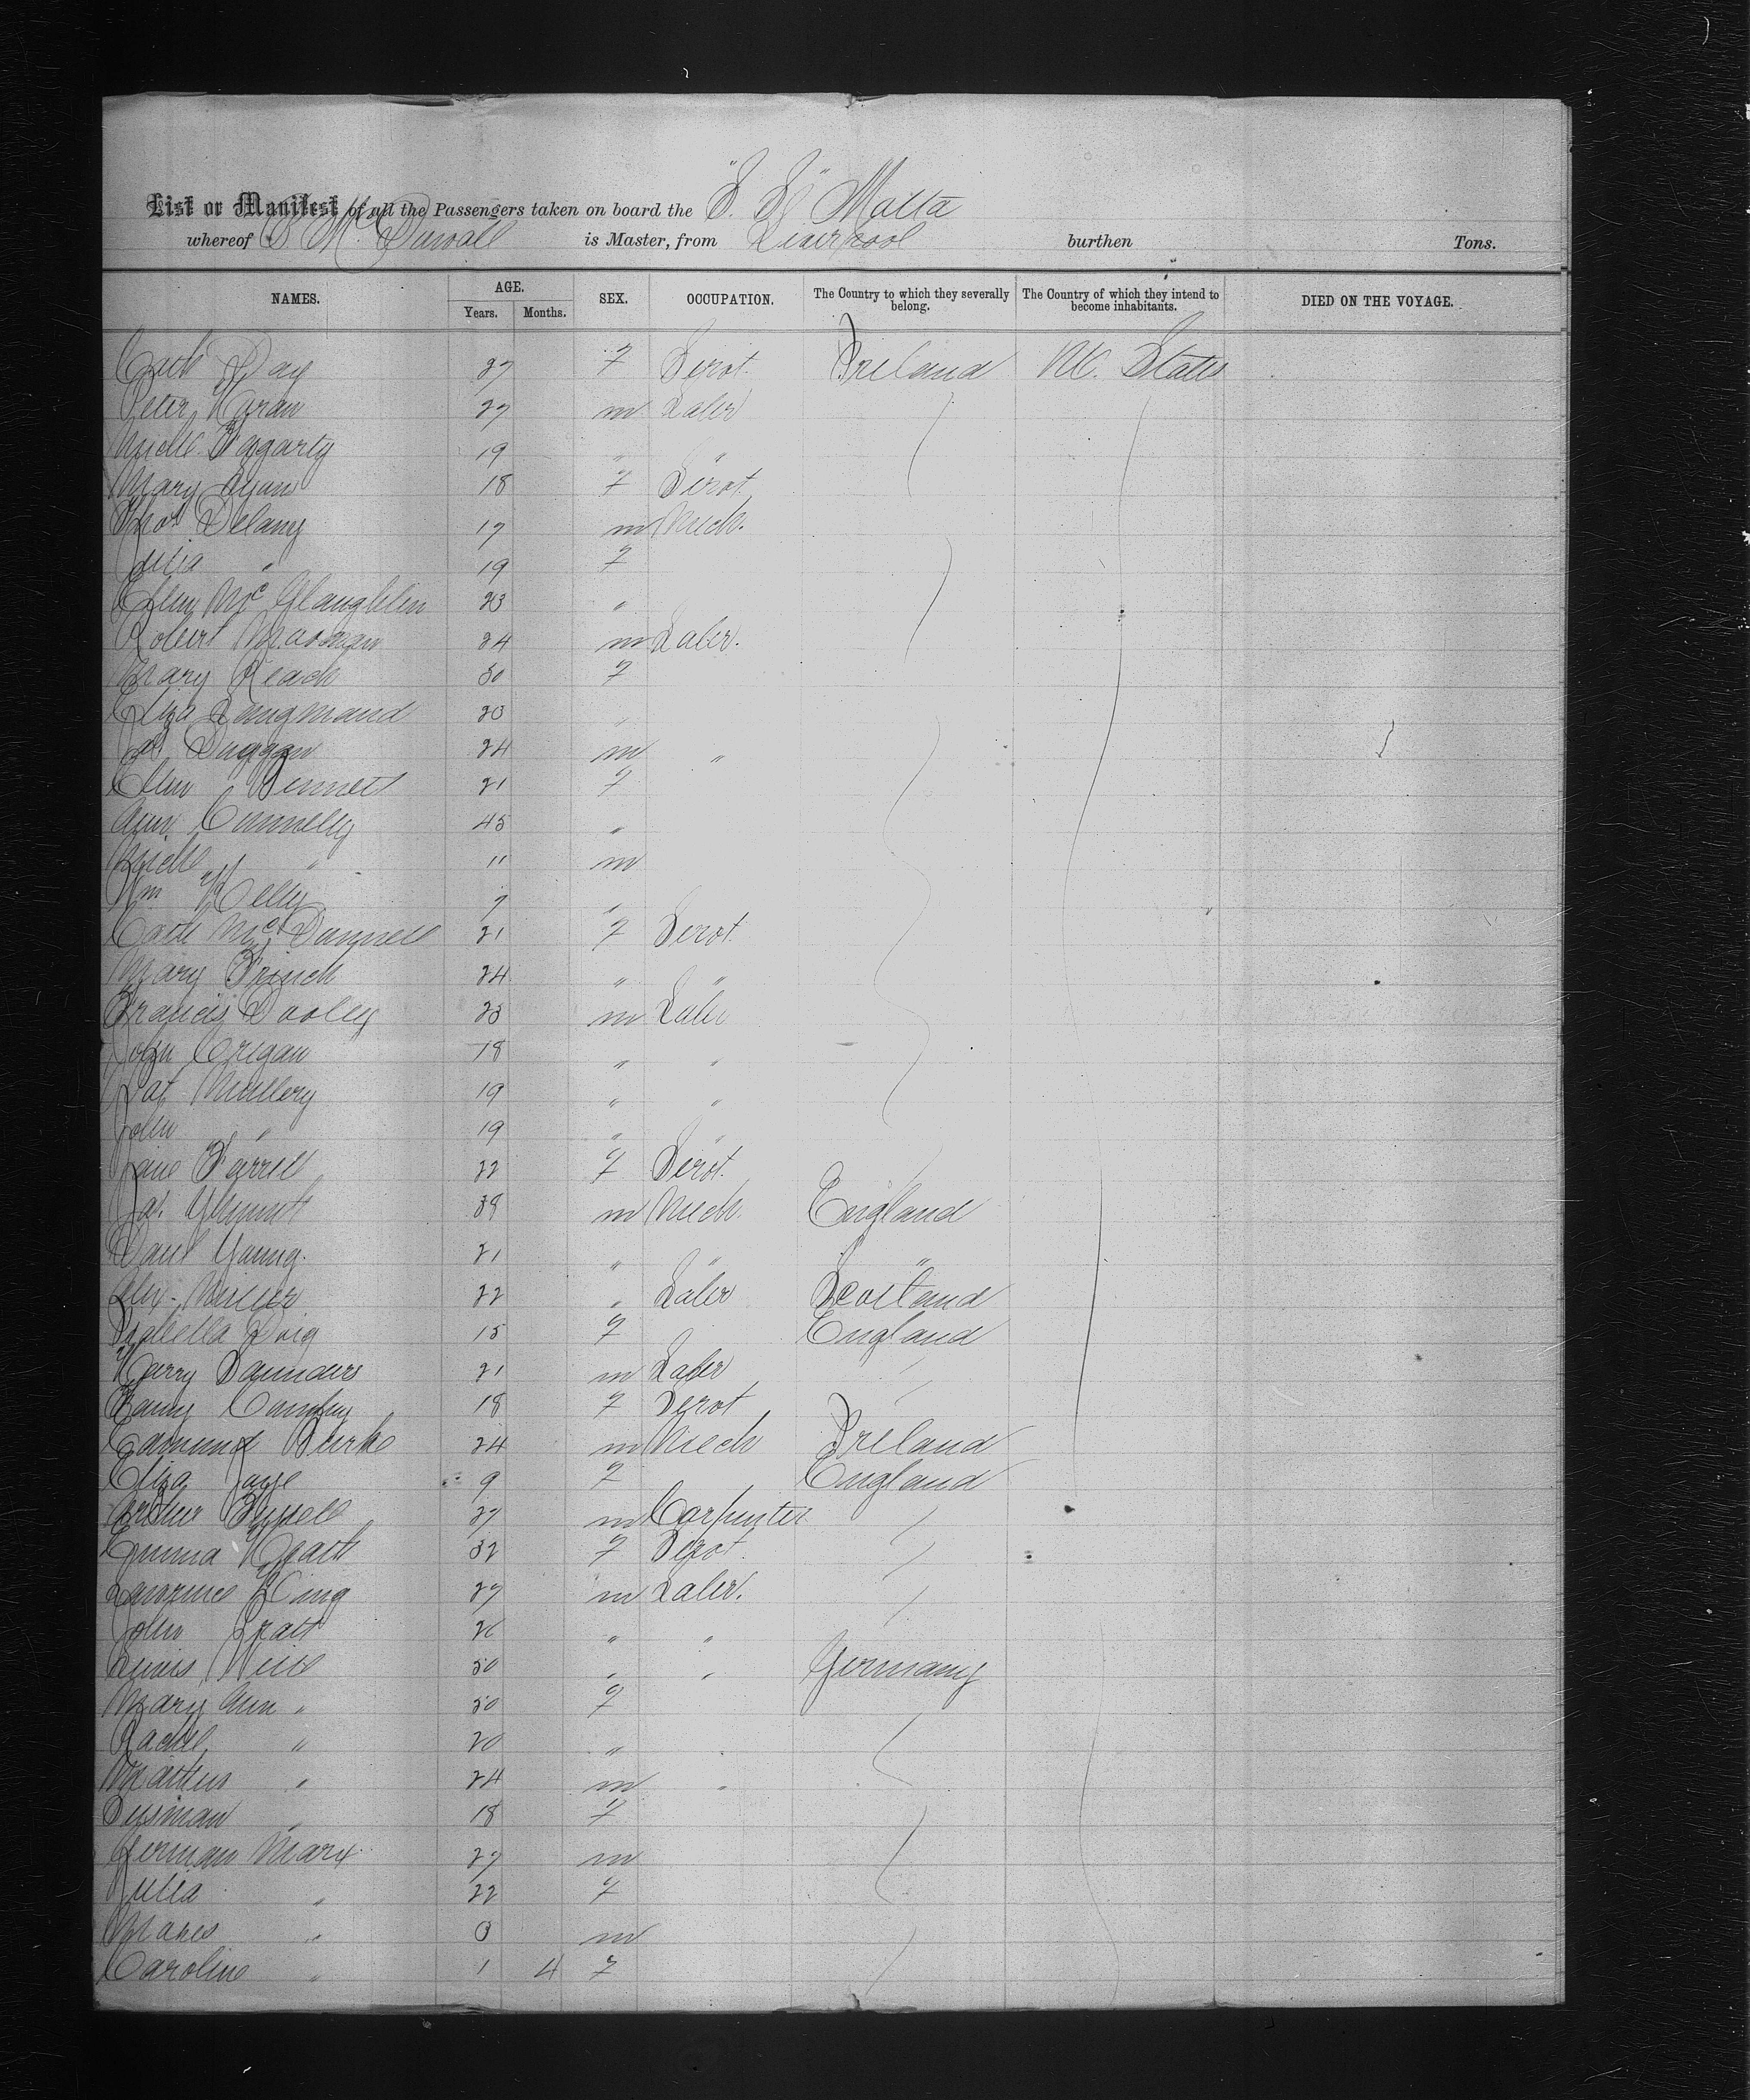 List or Manifest of all the Passengers taken on board the "S. S." Malta
whereof Mc is Master, from Liverpool burthen Tons.
NAMES. AGE. SEX. OCCUPATION. The Country to which they severally belong. The Country of which they intend to become inhabitants. DIED ON THE VOYAGE.
Years. Months.
Cath Day 27 F Servt. Ireland U. States
Peter Horan 27 m Labr
Michl. Fogarty 19 " "
Mary Ryan 18 F Servt.
Thos Delany 17 m Mech.
Julia " 19 F
Ellen McGlaughlin 23 "
Robert 24 m Labr.
Mary Reach 30 F
Eliza 20 "
Duggan 24 m "
Ellen Bennett 21 F
Ann Connelly 45 "
Michl " 11 m
Wm Kelly 7 "
Cath McDonnell 21 F Servt.
Mary French 24 " "
Francis Dooley 23 m Labr
John Cregan 18 " "
Pat Mullery 19 " "
John " 19 " "
Jane Farrell 22 F Servt.
m Mech. England
Danl Young. 21 " " "
Alex. Miller 22 " Labr Scotland
Isabella Doig 15 F England
Harry Saunders 21 m Labr
Fanny 18 F Servt
Edmund Burke 24 m Mech Ireland
Eliza Jaye 9 F England
Arthur 27 m Carpenter
Emma Heath 32 F Servt.
Lawrence King 27 m Labr.
John Pratt 26 " "
50 " " Germany
Mary Ann " 50 F
Rachel " 20 "
" 24 m "
" 18 F
Herman Marx 27 m
Julia " 22 F
" m
Caroline " 1 4 F